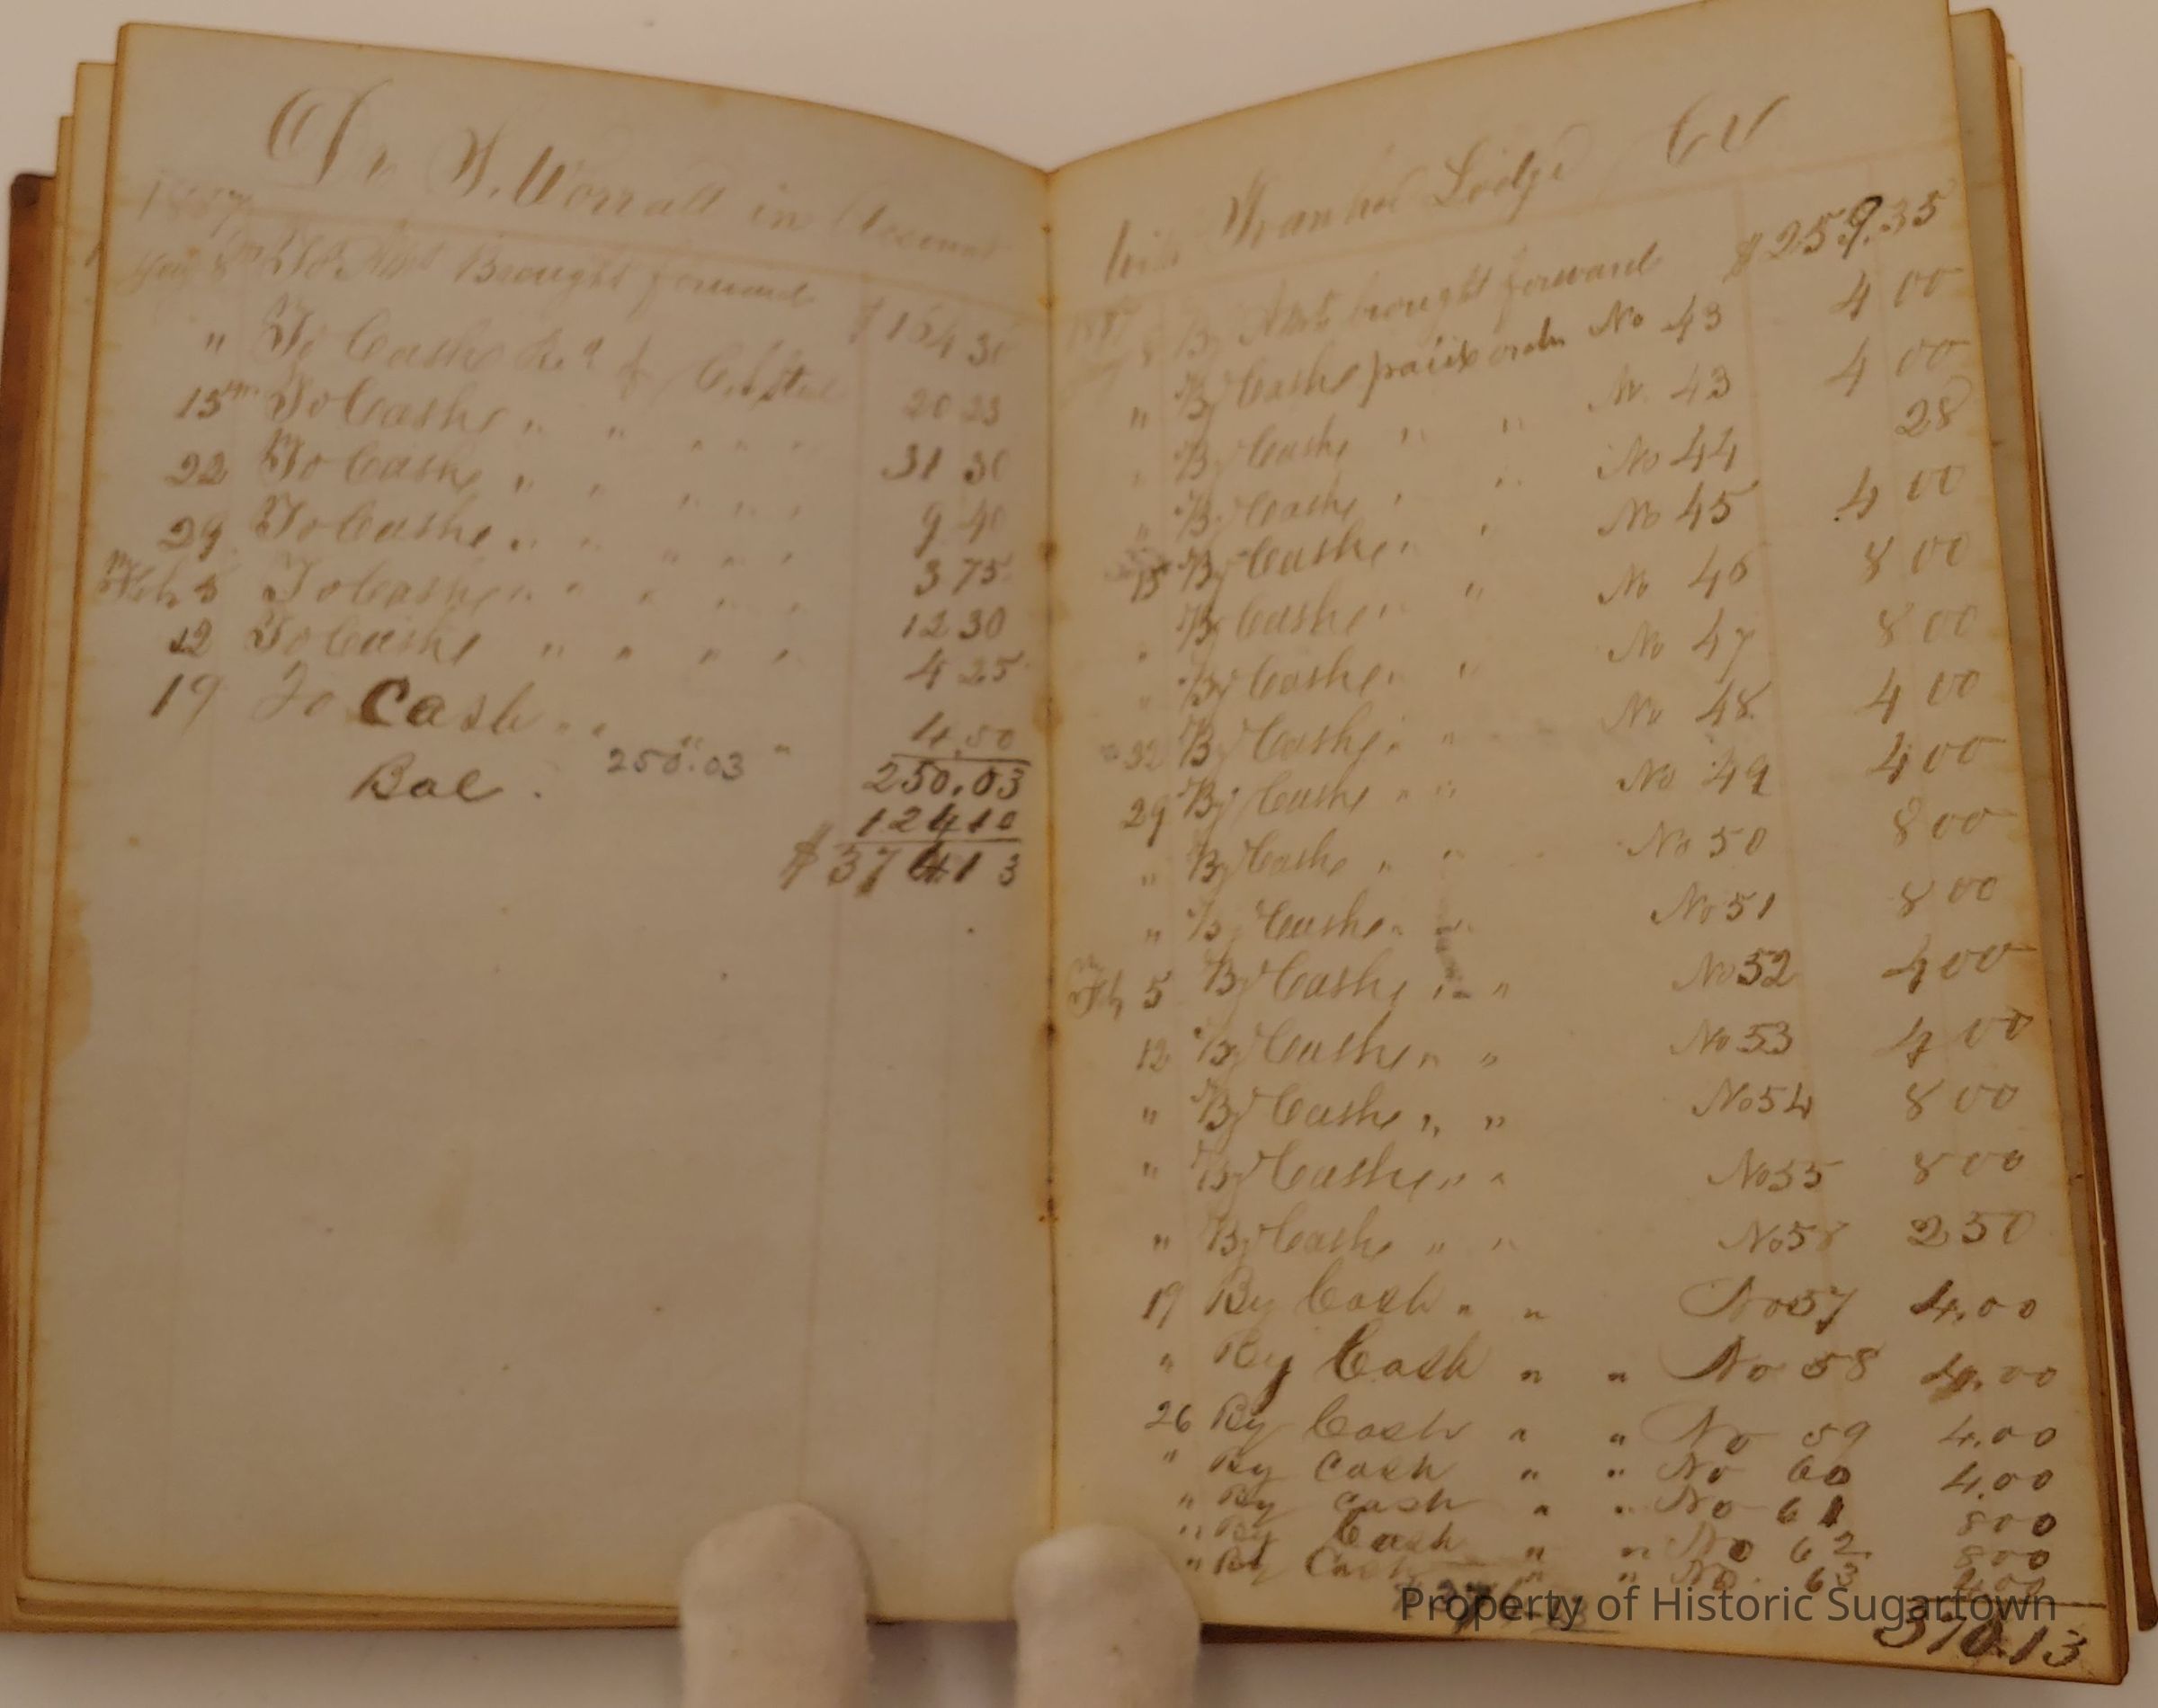 Dr I. Worrall in Account
1857
Jan 8 To Amt Brought forward $164 30
" To Cash Rec'd of C. S. 20 23
15 To Cash " " " " " 31 30
22 To Cash " " " " " 9 40
29 To Cash " " " " " 3 75
Feb 5 To Cash " " " " " 12 30
12 To Cash " " " " 4 25
19 To Cash " " " " 4.50
250.03
Bal. 250.03
124 10
$374 13
With Ivanhoe Lodge Cr
1857 8 By Amt brought forward $259.35
" By Cash paid order No 43 4 00
" By Cash " " No 43 4 00
" By Cash " " No 44 28
15 By Cash " " No 45 4 00
" By Cash " " No 46 8 00
" By Cash " " No 47 8 00
22 By Cash " " No 48 4 00
29 By Cash " " No 49 4 00
" By Cash " " No 50 8 00
" By Cash " " No 51 8 00
Feb 5 By Cash " " No 52 4 00
12 By Cash " " No 53 4 00
" By Cash " " No 54 8 00
" By Cash " " No 55 8 00
" By Cash " " No 2 50
19 By Cash " " No 57 4.00
" By Cash " " No 58 4.00
26 By Cash " " No 59 4.00
" By Cash " " No 60 4.00
" By Cash " " No 61 8 00
" By Cash " " No 62 8 00
" By Cash " " No. 63 4.00
370.13
Property of Historic Sugartown